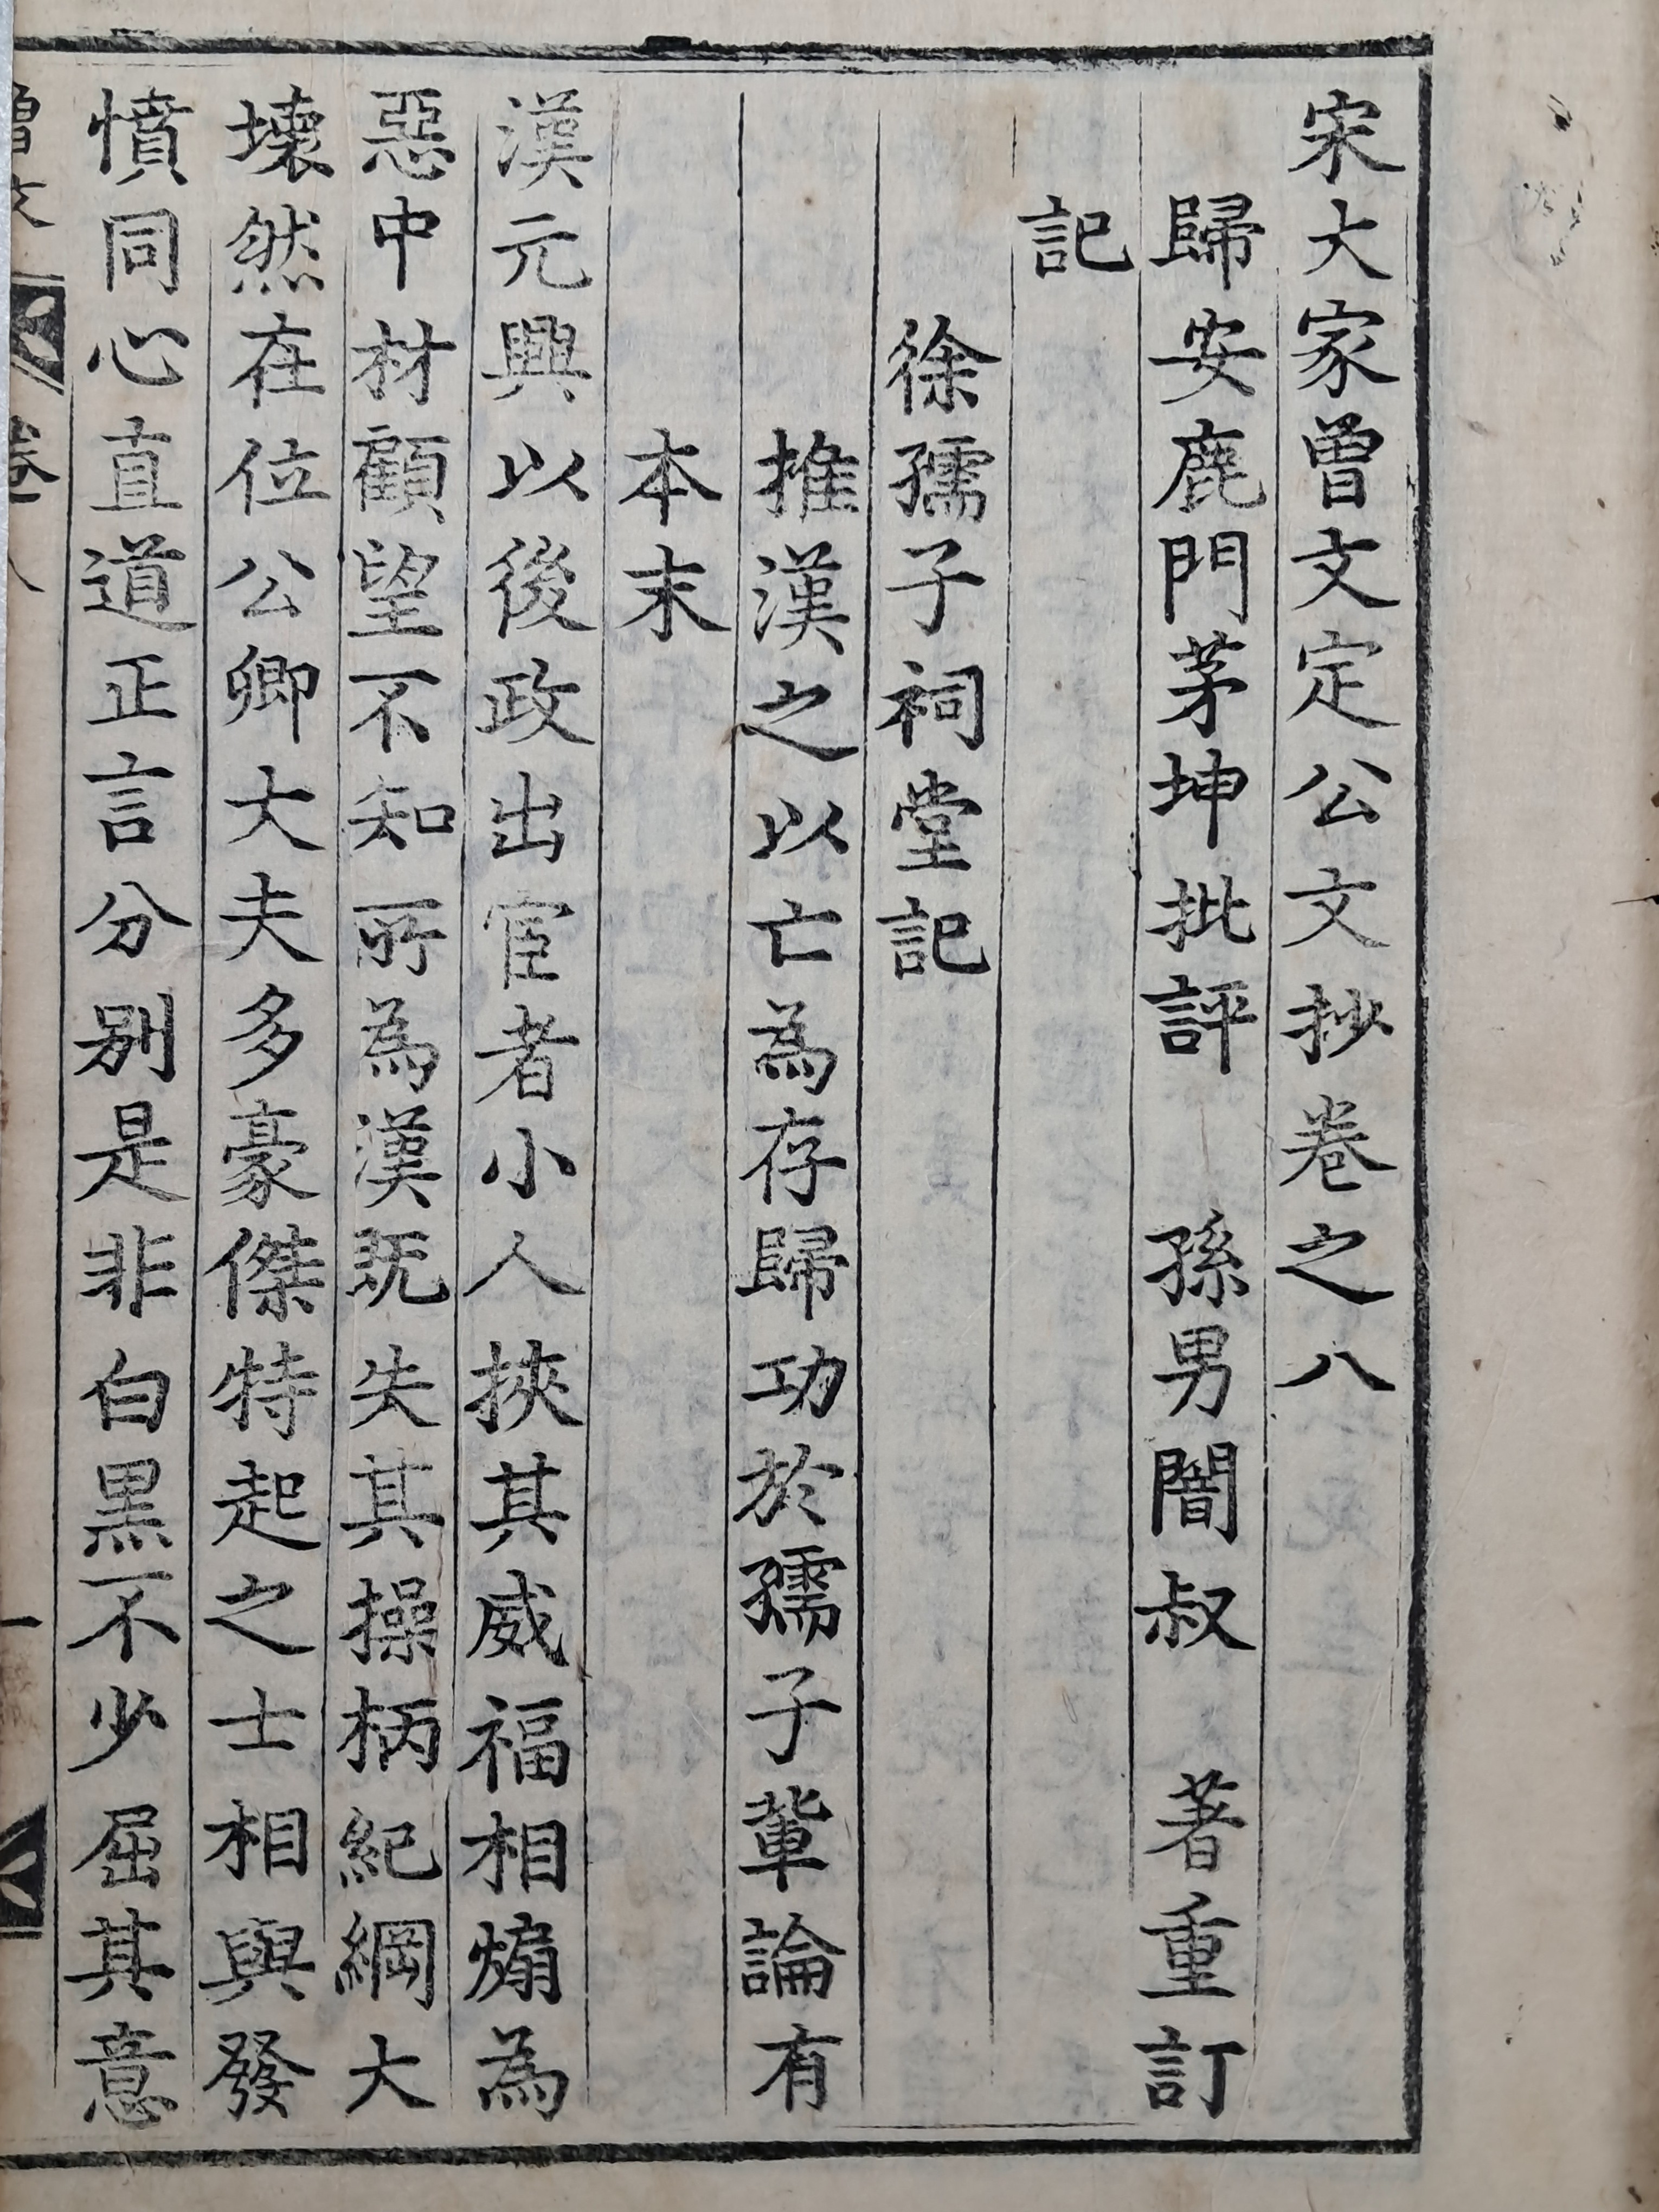 宋大家曾文定公文抄卷之八
歸安鹿門茅坤批評 孫男闇叔 著重訂
記
徐孺子祠堂記
推漢之以亡為存歸功於孺子輩論有
本末
漢元興以後政出宦者小人挾其威福相煽為
惡中材顧望不知所為漢既失其操柄紀綱大
壞然在位公卿大夫多豪傑特起之士相與發
憤同心直道正言分別是非白黒不少屈其意
曾文 卷八 一